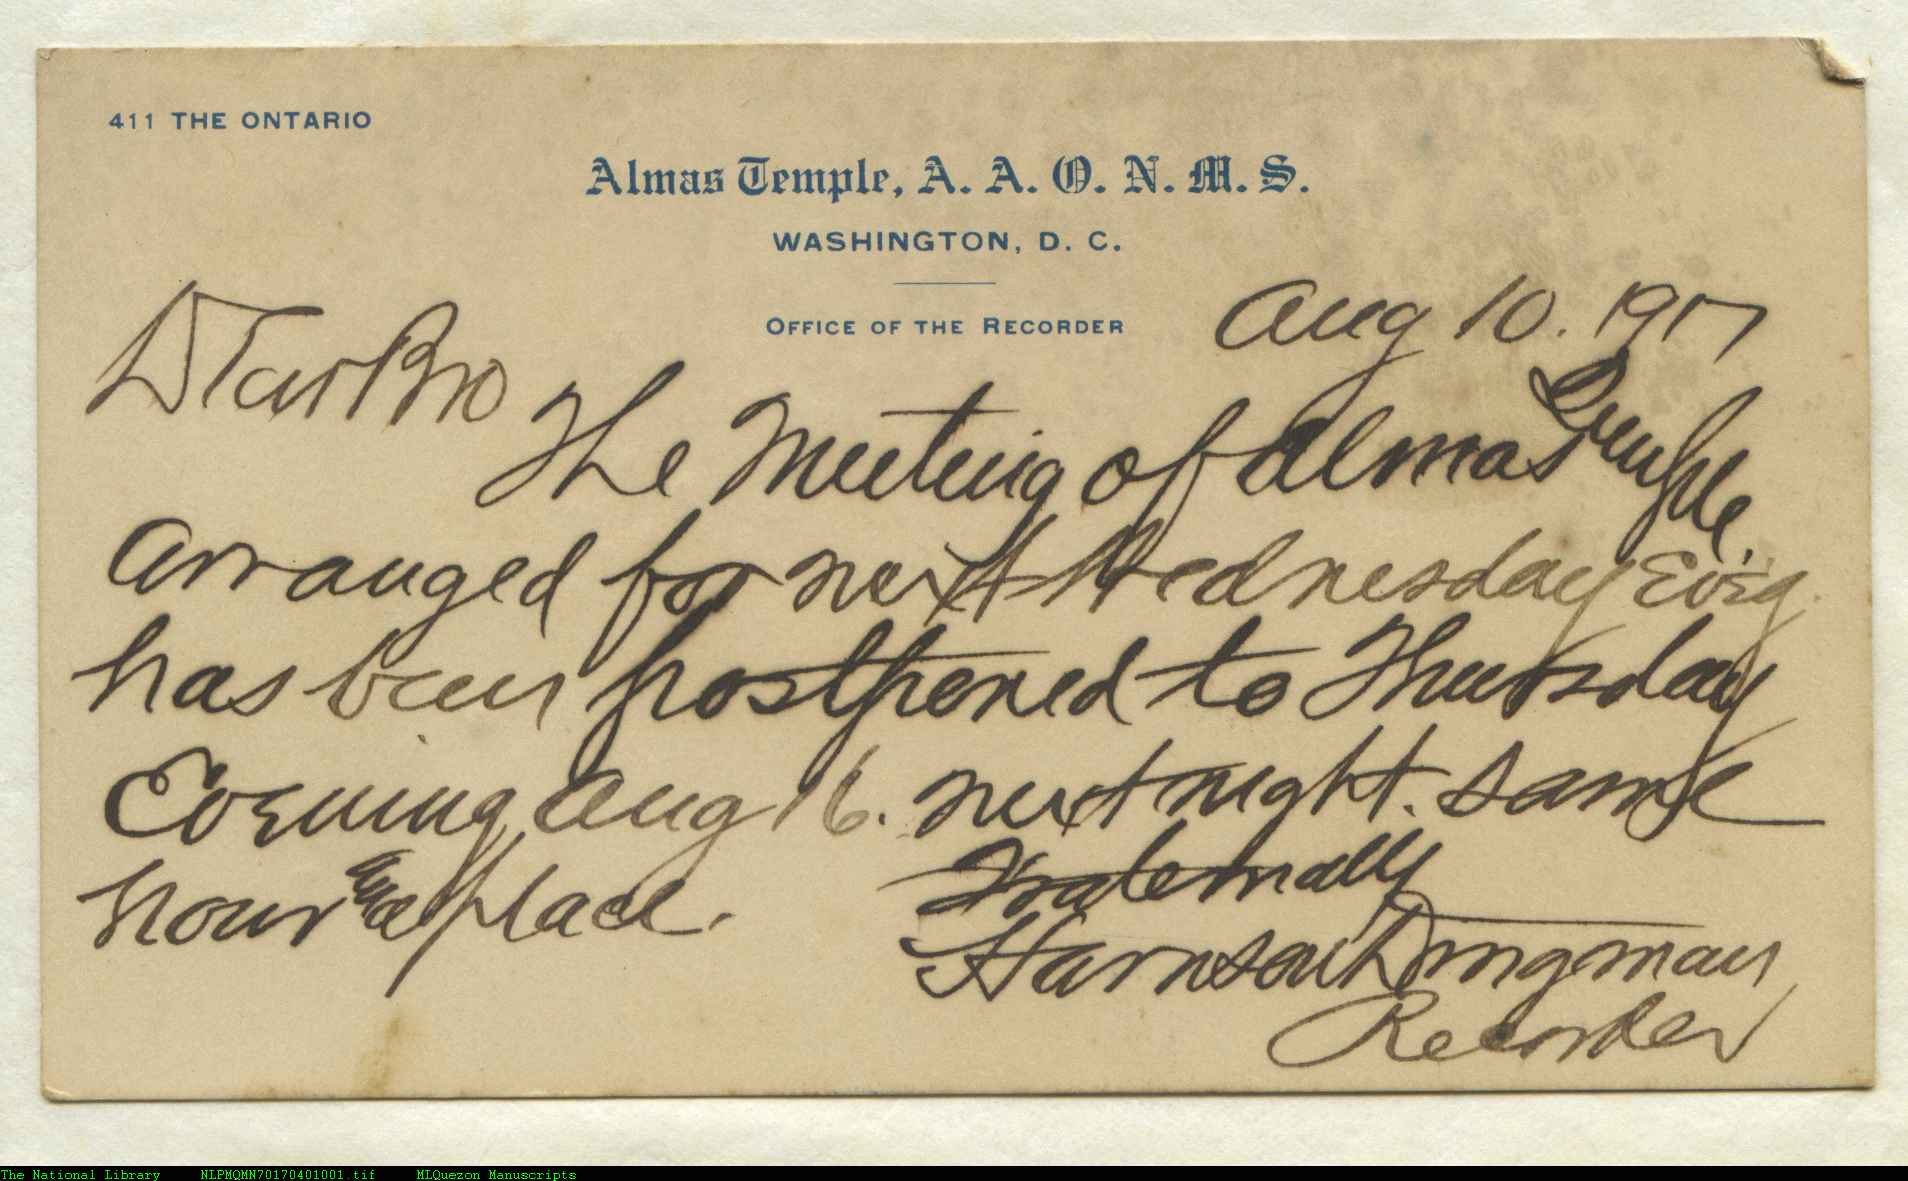 411 THE ONTARIO
Almas Temple, A. A. O. N. M. S.
WASHINGTON, D. C.
OFFICE OF THE RECORDER
Aug 10. 1917
Dear Bro
The Meeting of Almas Temple.
arranged for next Wednesday Ev'g.
has been postponed to Thursday
Evening Aug 16. next night. Same
hour place.
Fraternally
Harrison Dingman
Recorder
The National Library NLPMQMN70170401001.tif MLQuezon Manuscripts